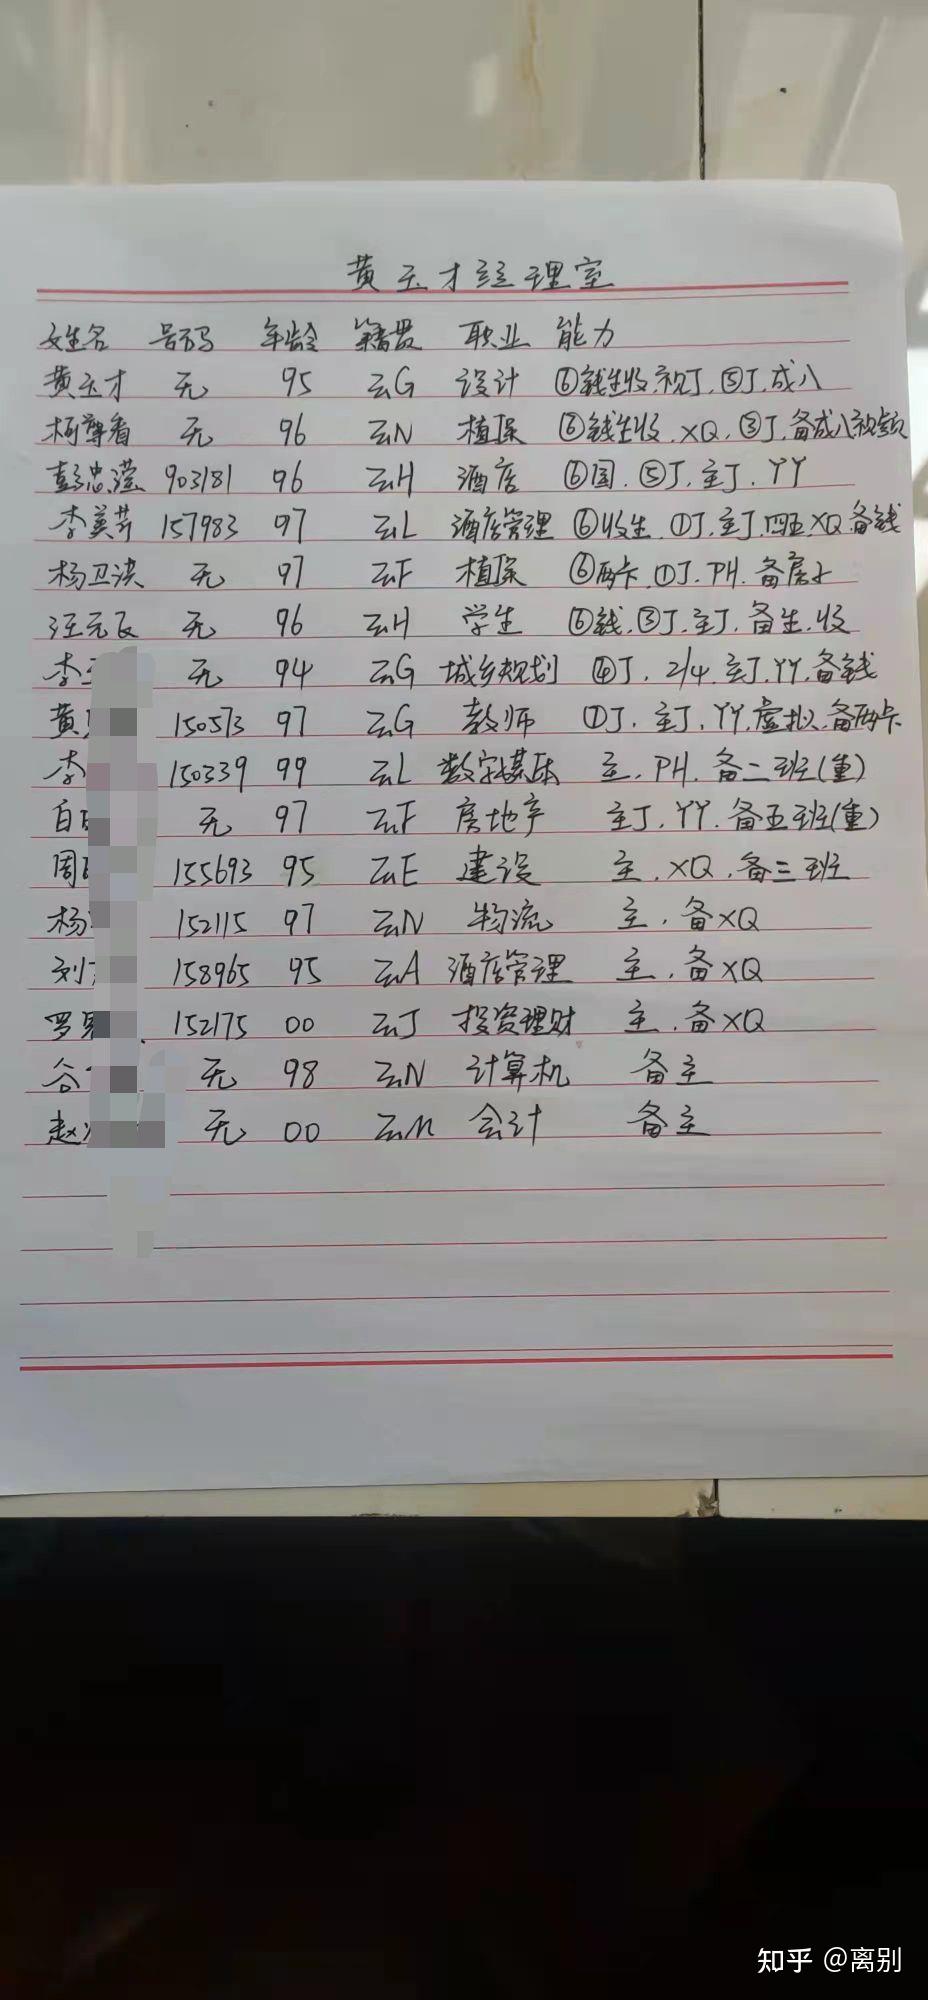 黄玉才经理室
姓名 号码 年龄 籍贯 职业 能力
黄玉才 无 95 云G 设计 ⑥钱生收.视J.⑤J.成八
柯尊看 无 96 云N 植保 ⑥钱生收.XQ.③J.备成八视频
彭忠滢 903181 96 云H 酒店 ⑥国.⑤J.主J.YY
李美芹 157983 97 云L 酒店管理 ⑥收生.①J.主J.四五.XQ.备钱
杨卫洪 无 97 云F 植保 ⑥两卡.①J.PH.备房
汪元 无 96 云H 学生 ⑥钱.③J.主J.备生.收
李 无 94 云G 城乡规划 ④J.2/4.主J.YY.备钱
黄 150573 97 云G 教师 ①J.主J.YY.虚拟.备两卡
李 150339 99 云L 数字媒体 主.PH.备二班(重)
白 无 97 云F 房地产 主J.YY.备五班(重)
周 155693 95 云E 建设 主.XQ.备三班
杨 152115 97 云N 物流 主.备XQ
刘 158965 95 云A 酒店管理 主.备XQ
罗 152175 00 云J 投资理财 主.备XQ
谷 无 98 云N 计算机 备主
赵 无 00 云M 会计 备主
知乎 @离别